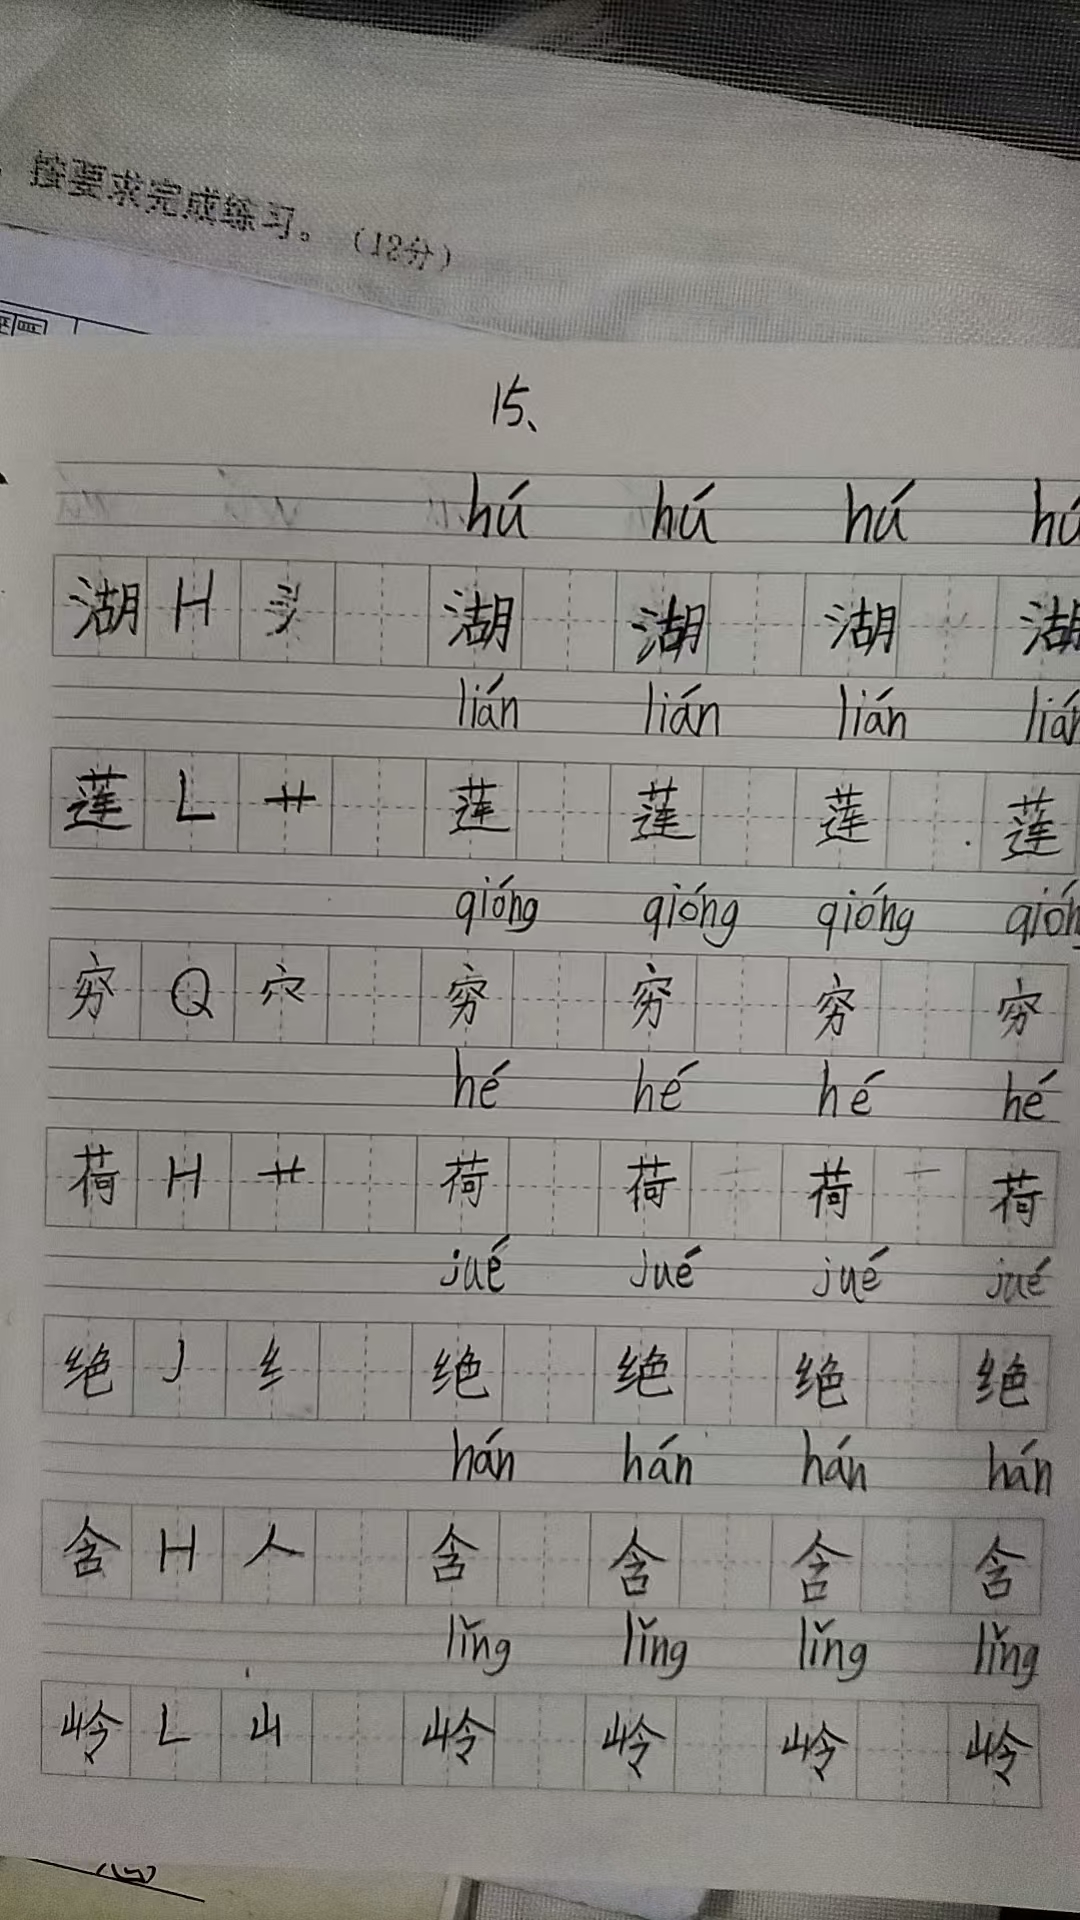 按要求完成练习。(12分)
15、
hú hú hú
湖 H 氵 湖 湖 湖 湖
lián lián lián lián
莲 L 艹 莲 莲 莲 莲
qióng qióng qióng
穷 Q 穴 穷 穷 穷 穷
hé hé hé hé
荷 H 艹 荷 荷 荷 荷
jué jué jué jué
绝 J 纟 绝 绝 绝 绝
hán hán hán hán
含 H 人 含 含 含 含
lǐng lǐng lǐng lǐng
岭 L 山 岭 岭 岭 岭